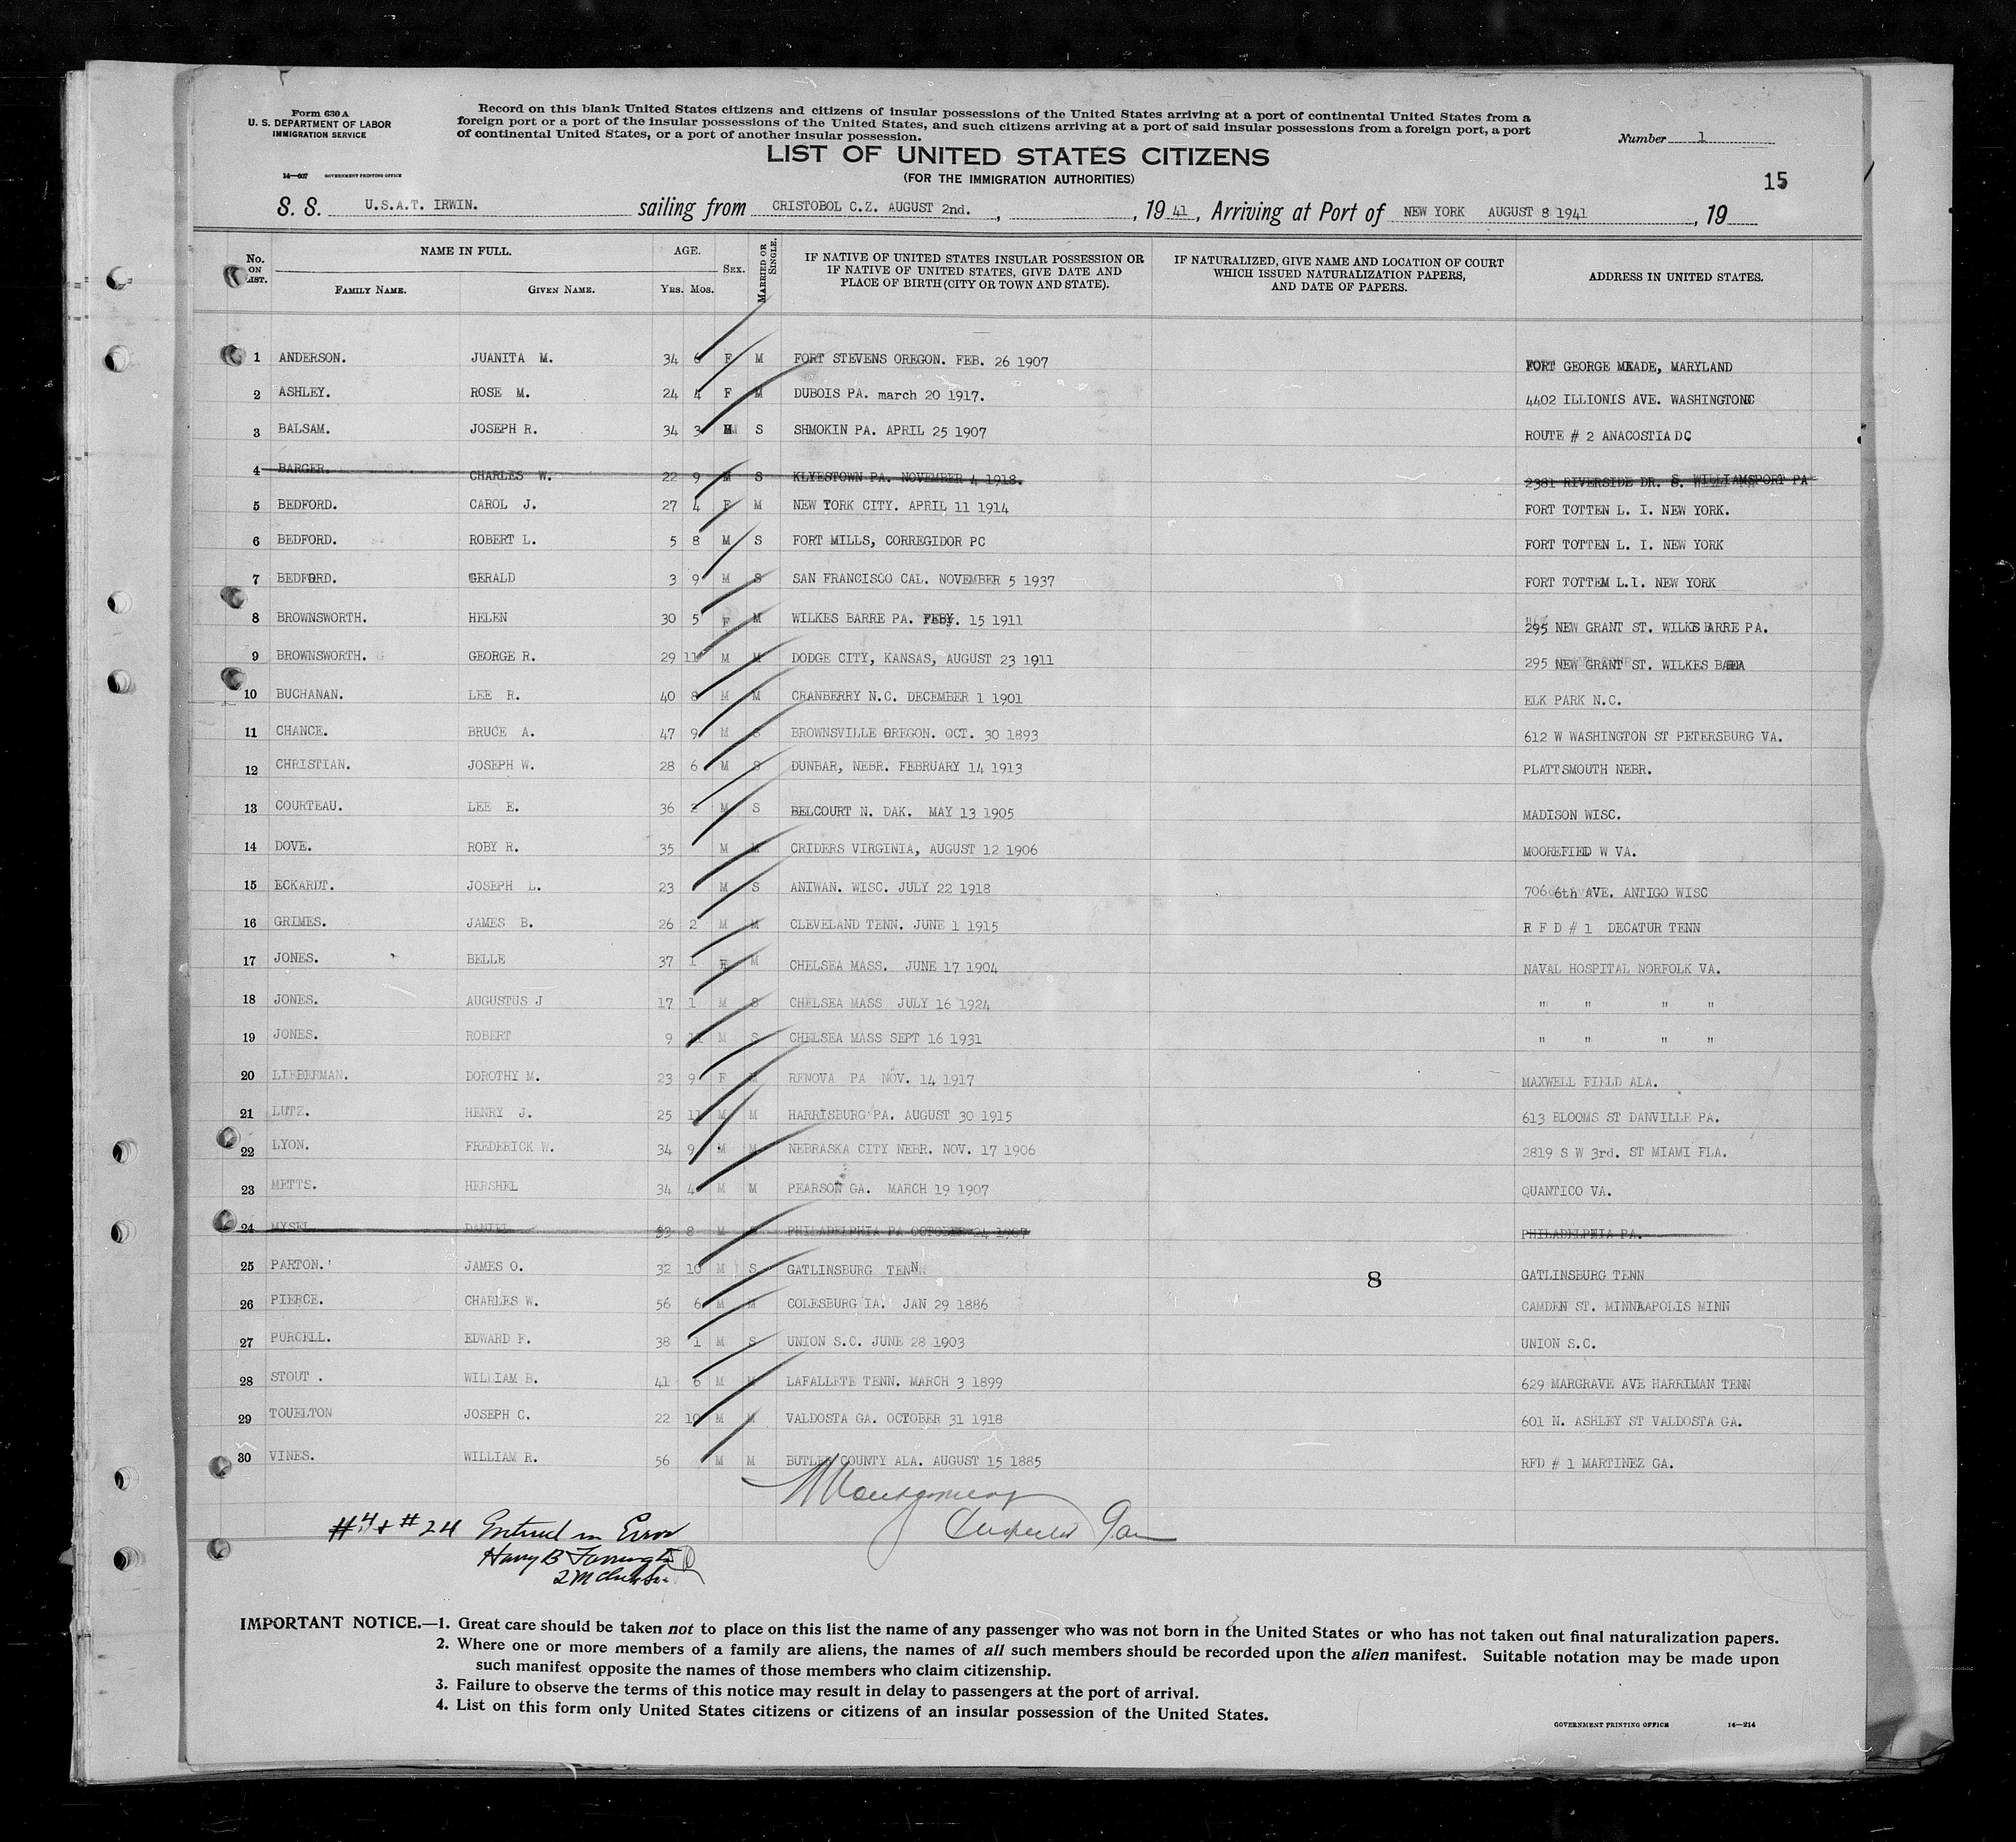 Form 630 A
U. S. DEPARTMENT OF LABOR
IMMIGRATION SERVICE
14—607 GOVERNMENT PRINTING OFFICE
Record on this blank United States citizens and citizens of insular possessions of the United States arriving at a port of continental United States from a
foreign port or a port of the insular possessions of the United States, and such citizens arriving at a port of said insular possessions from a foreign port, a port
of continental United States, or a port of another insular possession.
Number 1
LIST OF UNITED STATES CITIZENS
(FOR THE IMMIGRATION AUTHORITIES)
15
S. S. U.S.A.T. IRWIN. sailing from CRISTOBOL C.Z. AUGUST 2nd. , , 19 41 , Arriving at Port of NEW YORK AUGUST 8 1941 , 19
No. ON LIST. NAME IN FULL. AGE. SEX. MARRIED OR SINGLE. IF NATIVE OF UNITED STATES INSULAR POSSESSION OR IF NATIVE OF UNITED STATES, GIVE DATE AND PLACE OF BIRTH (CITY OR TOWN AND STATE). IF NATURALIZED, GIVE NAME AND LOCATION OF COURT WHICH ISSUED NATURALIZATION PAPERS, AND DATE OF PAPERS. ADDRESS IN UNITED STATES.
FAMILY NAME. GIVEN NAME. YRS. MOS.
1 ANDERSON. JUANITA M. 34 6 F M FORT STEVENS OREGON. FEB. 26 1907 FORT GEORGE MEADE, MARYLAND
2 ASHLEY. ROSE M. 24 4 F M DUBOIS PA. march 20 1917. 4402 ILLIONIS AVE. WASHINGTONDC
3 BALSAM. JOSEPH R. 34 3 M S SHMOKIN PA. APRIL 25 1907 ROUTE # 2 ANACOSTIA DC
4 BARGER. CHARLES W. 22 9 M S KLYESTOWN PA. NOVEMBER 4 1918. 2381 RIVERSIDE DR. S. WILLIAMSPORT PA
5 BEDFORD. CAROL J. 27 4 F M NEW YORK CITY. APRIL 11 1914 FORT TOTTEN L. I. NEW YORK.
6 BEDFORD. ROBERT L. 5 8 M S FORT MILLS, CORREGIDOR PC FORT TOTTEN L. I. NEW YORK
7 BEDFORD. GERALD 3 9 M S SAN FRANCISCO CAL. NOVEMBER 5 1937 FORT TOTTEM L.I. NEW YORK
8 BROWNSWORTH. HELEN 30 5 F M WILKES BARRE PA. FEBY. 15 1911 295 NEW GRANT ST. WILKES BARRE PA.
9 BROWNSWORTH. GEORGE R. 29 11 M M DODGE CITY, KANSAS, AUGUST 23 1911 295 NEW GRANT ST. WILKES
10 BUCHANAN. LEE R. 40 8 M M CRANBERRY N.C. DECEMBER 1 1901 ELK PARK N.C.
11 CHANCE. BRUCE A. 47 9 M S BROWNSVILLE OREGON. OCT. 30 1893 612 W WASHINGTON ST PETERSBURG VA.
12 CHRISTIAN. JOSEPH W. 28 6 M S DUNBAR, NEBR. FEBRUARY 14 1913 PLATTSMOUTH NEBR.
13 COURTEAU. LEE E. 36 2 M S BELCOURT N. DAK. MAY 13 1905 MADISON WISC.
14 DOVE. ROBY R. 35 M M CRIDERS VIRGINIA, AUGUST 12 1906 MOOREFIELD W VA.
15 ECKARDT. JOSEPH L. 23 M S ANIWAN. WISC. JULY 22 1918 706 6th AVE. ANTIGO WISC
16 GRIMES. JAMES B. 26 2 M M CLEVELAND TENN. JUNE 1 1915 R F D # 1 DECATUR TENN
17 JONES. BELLE 37 1 F M CHELSEA MASS. JUNE 17 1904 NAVAL HOSPITAL NORFOLK VA.
18 JONES. AUGUSTUS J 17 1 M S CHELSEA MASS JULY 16 1924 " " " "
19 JONES. ROBERT 9 11 M S CHELSEA MASS SEPT 16 1931 " " " "
20 LIEBERMAN. DOROTHY M. 23 9 F M RENOVA PA NOV. 14 1917 MAXWELL FIELD ALA.
21 LUTZ. HENRY J. 25 11 M M HARRISBURG PA. AUGUST 30 1915 613 BLOOMS ST DANVILLE PA.
22 LYON. FREDERICK W. 34 9 M M NEBRASKA CITY NEBR. NOV. 17 1906 2819 S W 3rd. ST MIAMI FLA.
23 METTS. HERSHEL 34 4 M M PEARSON GA. MARCH 19 1907 QUANTICO VA.
24 MYSEL DANIEL 33 8 M S PHILADELPHIA PA OCTOBER 24 1907 PHILADELPHIA PA.
25 PARTON. JAMES O. 32 10 M S GATLINSBURG TENN 8 GATLINSBURG TENN
26 PIERCE. CHARLES W. 56 6 M M COLESBURG IA. JAN 29 1886 CAMDEN ST. MINNEAPOLIS MINN
27 PURCELL. EDWARD F. 38 1 M S UNION S.C. JUNE 28 1903 UNION S.C.
28 STOUT . WILLIAM B. 41 6 M M LAFALLETE TENN. MARCH 3 1899 629 MARGRAVE AVE HARRIMAN TENN
29 TOUELTON JOSEPH C. 22 10 M M VALDOSTA GA. OCTOBER 31 1918 601 N. ASHLEY ST VALDOSTA GA.
30 VINES. WILLIAM R. 56 M M BUTLER COUNTY ALA. AUGUST 15 1885 RFD # 1 MARTINEZ GA.
Montgomery
#4 + #24 Entered in Error
Harry B
IMPORTANT NOTICE.—1. Great care should be taken not to place on this list the name of any passenger who was not born in the United States or who has not taken out final naturalization papers.
2. Where one or more members of a family are aliens, the names of all such members should be recorded upon the alien manifest. Suitable notation may be made upon
such manifest opposite the names of those members who claim citizenship.
3. Failure to observe the terms of this notice may result in delay to passengers at the port of arrival.
4. List on this form only United States citizens or citizens of an insular possession of the United States.
GOVERNMENT PRINTING OFFICE 14—214